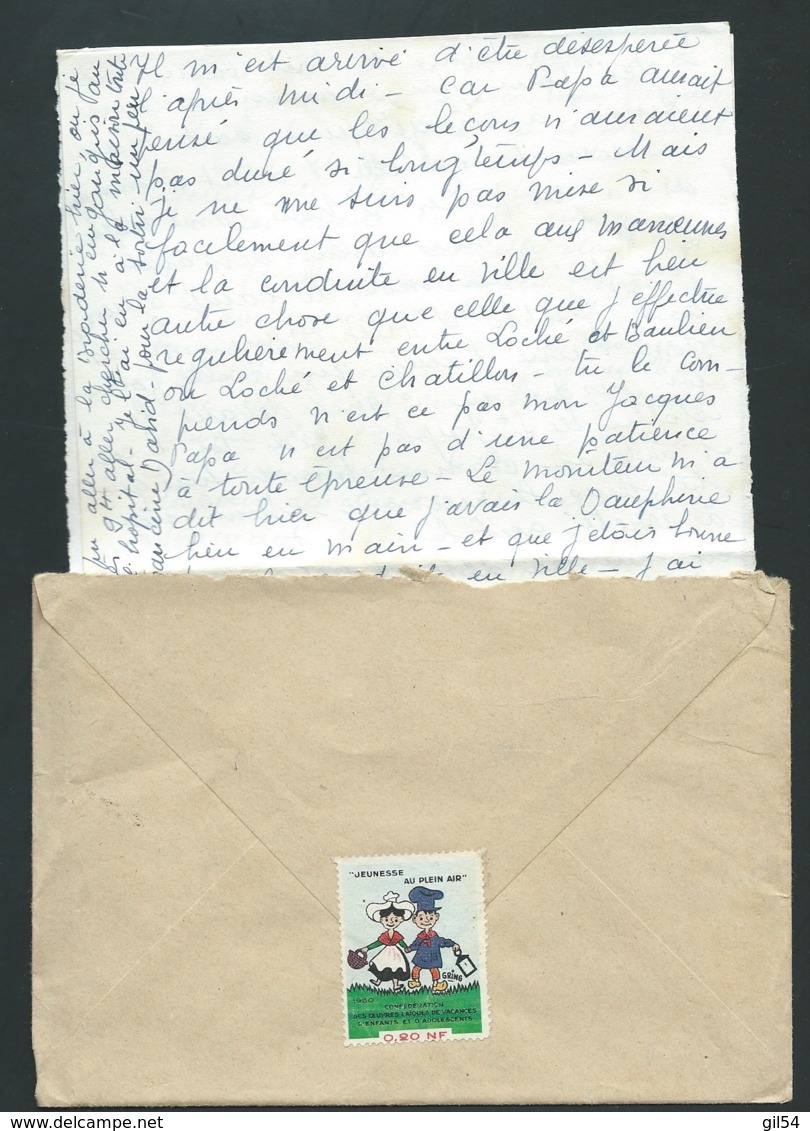 Il m'est arrivé d'être désespérée
l'après midi - car Papa aurait
pensé que les leçons n'auraient
pas duré si longtemps - Mais
Je ne me suis pas mise si
facilement que cela aux manœuvres
et la conduite en ville est bien
autre chose que celle que j'effectue
regulièrement entre Loché et Baulieu
ou Loché et Chatillon - tu le com-
prends n'est ce pas mon Jacques
Papa n'est pas d'une patience
à toute épreuse - Le moniteur m'a
dit hier que j'avais la Dauphine
bien en main - et que j'étais bonne
en ville - J'ai
pu aller à la hier, ou je
aller chercher
hopital - à la maison toute
pour la sortir un peu
"JEUNESSE
AU PLEIN AIR"
GRING
1960
CONFEDERATION
DES ŒUVRES LAÏQUES DE VACANCES
D'ENFANTS ET D'ADOLESCENTS
0,20 NF
gil54